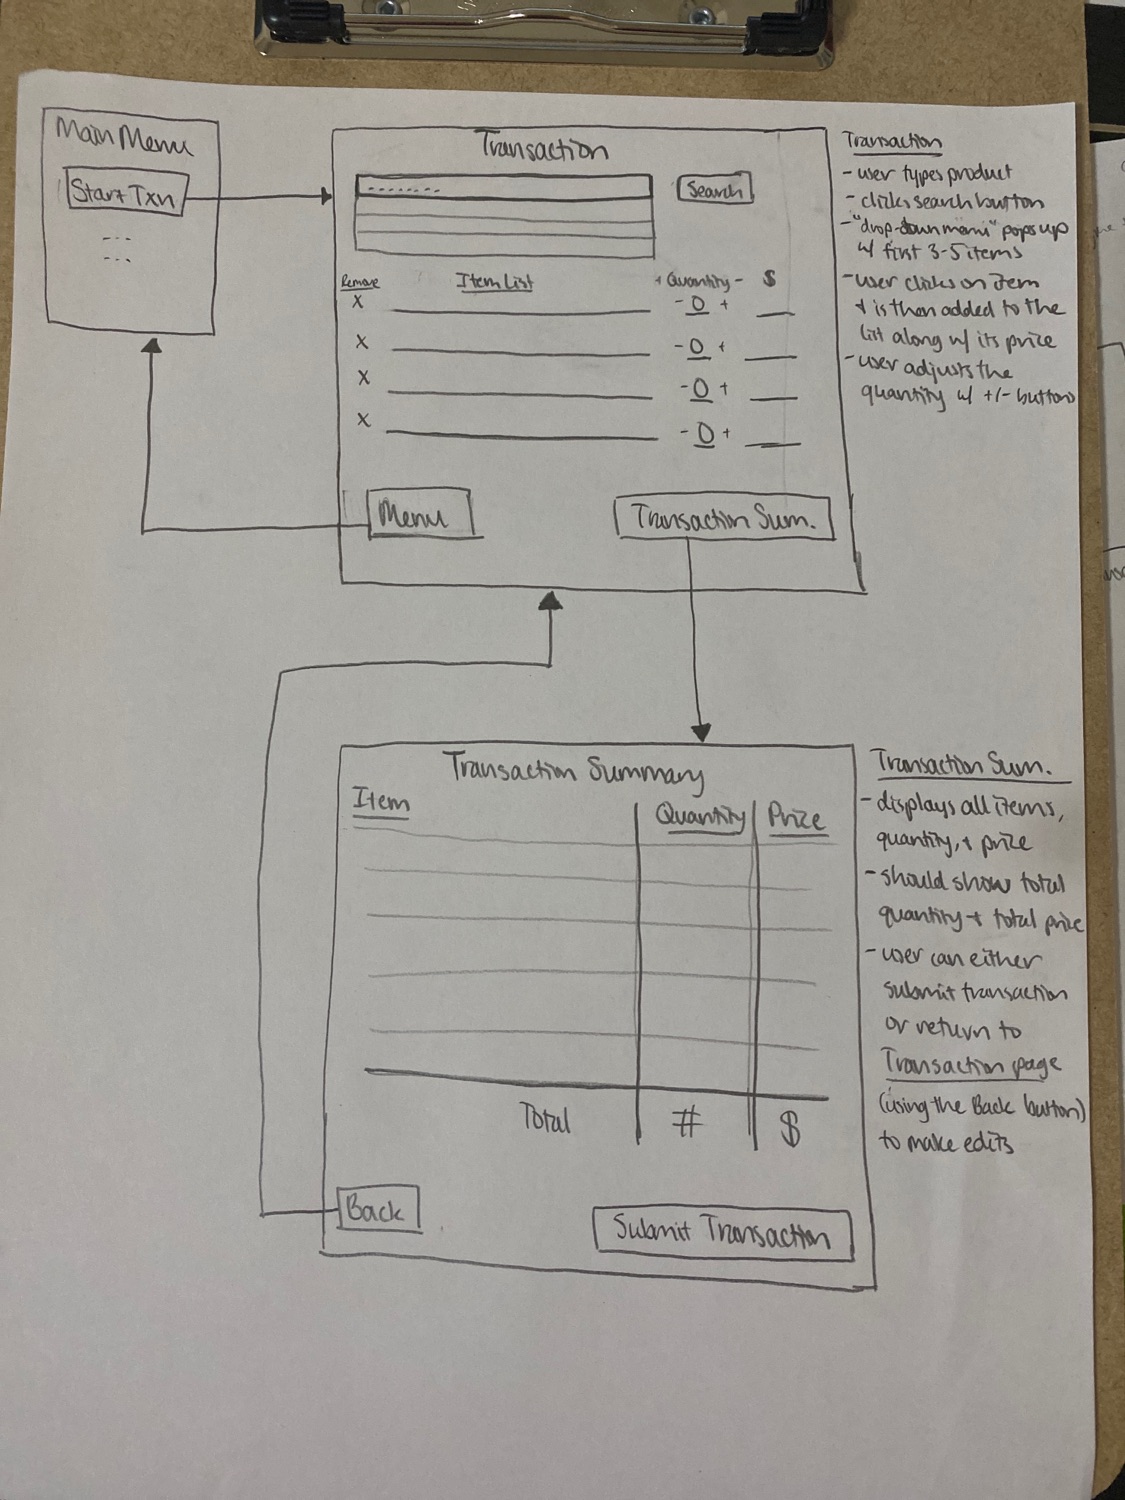 Main Menu
Start Txn
Transaction
Search
Remove Item List + Quantity - $
X - 0 +
X - 0 +
X - 0 +
X - 0 +
Menu
Transaction Sum.
Transaction
- user types product
- clicks search button
- "drop-down menu" pops up
w/ first 3-5 items
- user clicks on item
+ is then added to the
list along w/ its price
- user adjusts the
quantity w/ +/- buttons
Transaction Summary
Item Quantity Price
Total # $
Back
Submit Transaction
Transaction Sum.
- displays all items,
quantity, + price
- should show total
quantity + total price
- user can either
submit transaction
or return to
Transaction page
(using the Back button)
to make edits